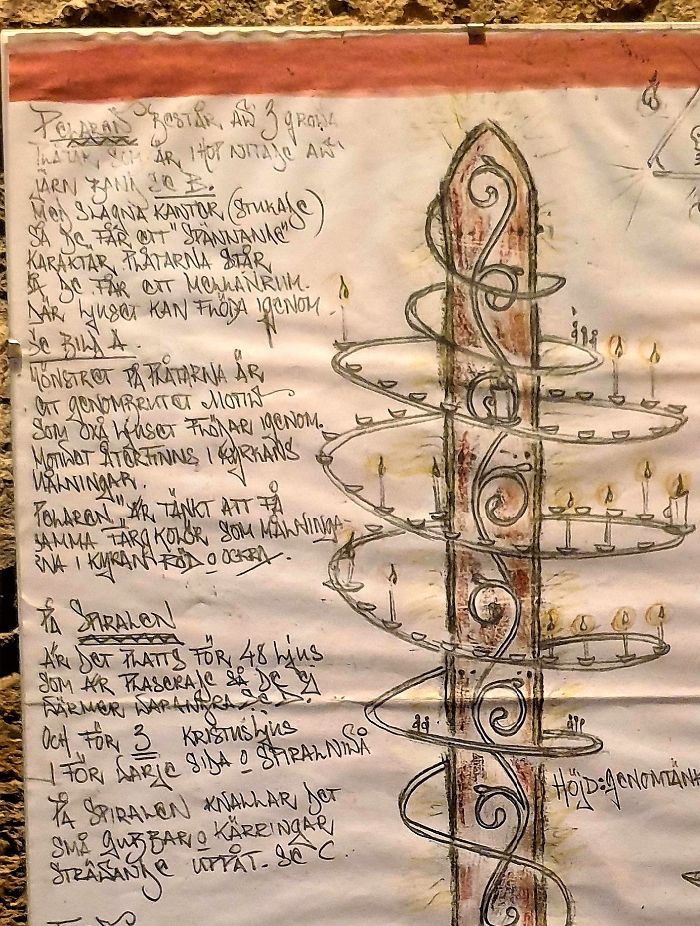 PELAREN BESTÅR AV 3 GROVA
PLÅTAR, SOM ÄR IHOP NITADE AV
JÄRN BAND SE B.
MED SLAGNA KANTER (STUKADE)
SÅ DE FÅR ETT "SPÄNNANDE"
KARAKTÄR. PLÅTARNA STÅR
SÅ DE FÅR ETT MELLANRUM.
DÄR LJUSET KAN FLÖDA IGENOM.
SE BILD A.
MÖNSTRET PÅ PLÅTARNA ÄR
ETT GENOMBRUTET MOTIV
SOM OXÅ LJUSET FLÖDAR IGENOM.
MOTIVET ÅTERFINNS I KYRKANS
MÅLNINGAR.
"PELAREN" ÄR TÄNKT ATT FÅ
SAMMA FÄRG KOLÖR SOM MÅLNINGA-
RNA I KYKAN RÖD O OCKRA.
PÅ SPIRALEN
ÄR DET PLATTS FÖR 48 LJUS
SOM ÄR PLASERADE SÅ DE EJ
VÄRMER VARANDRA SE D.
OCH FÖR 3 KRISTUSLJUS
1 FÖR VARJE SIDA O SPIRALNIVÅ
PÅ SPIRALEN KNALLAR DET
SMÅ GUBBAR O KÄRRINGAR
STRÄVANDE UPPÅT. SE C.
HÖJD: GENOMTÄNK